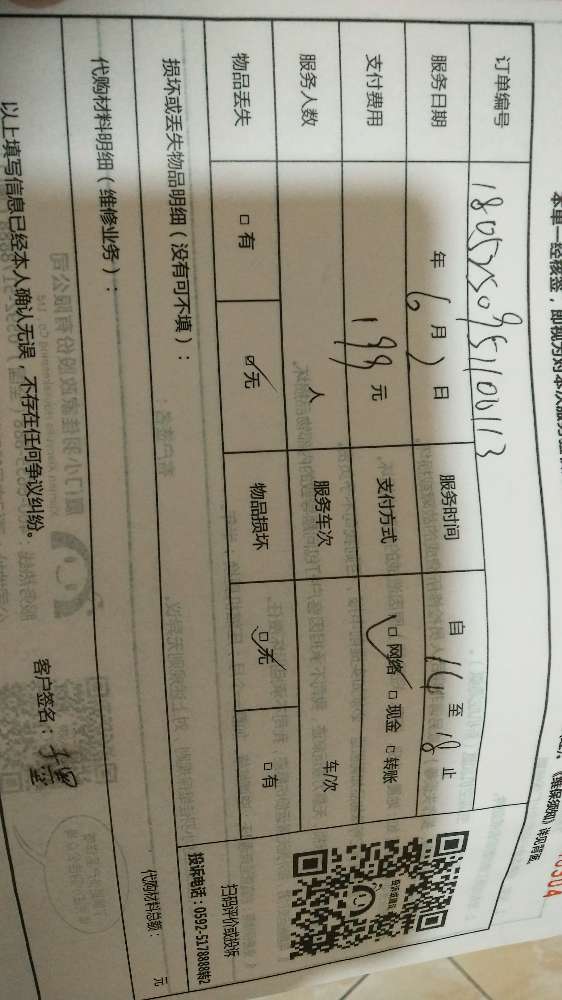 本单一经核签，即视为对本次服务
《维保须知》详见背面。
订单编号
服务日期 年 6 月 2 日 服务时间 自 14 至 18 止
支付费用 199 元 支付方式 ☑ 网络 □ 现金 □ 转账
服务人数 人 服务车次 车/次
物品丢失 □ 有 ☑ 无 物品损坏 ☑ 无 □ 有
损坏或丢失物品明细（没有可不填）：
扫码评价或投诉
投诉电话：0592-5178888转2
代购材料明细（维修业务）：
代购材料总额： 元
以上填写信息已经本人确认无误，不存在任何争议纠纷。
客户签名：